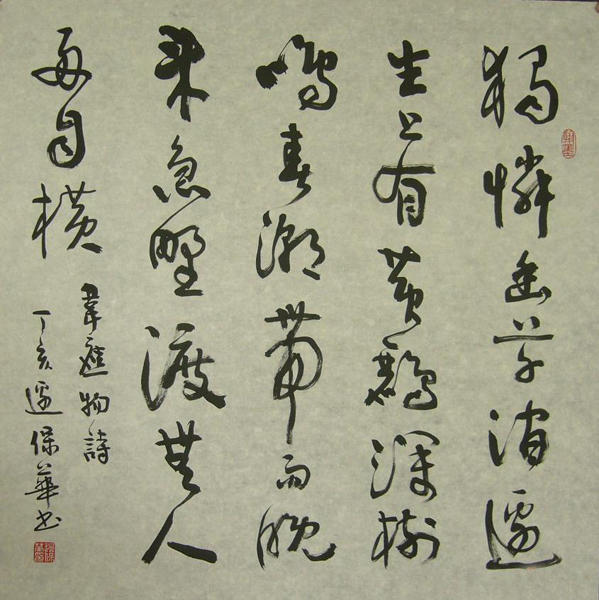 獨憐幽草澗邊
生上有黃鸝深樹
鳴春潮帶雨晚
來急野渡無人
舟自橫
韋應物詩
丁亥邊保華書